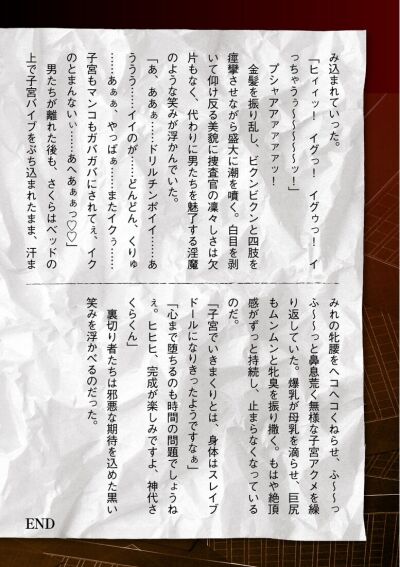 み込まれていった。
「ヒィィッ！　イグっ！　イグゥっ！　イ
っちゃうぅ～～～～～ッ！」
プシャアアァァァァァッ！
金髪を振り乱し、ビクンビクンと四肢を
痙攣させながら盛大に潮を噴く。白目を剥
いて仰け反る美貌に捜査官の凜々しさは欠
片もなく、代わりに男たちを魅了する淫魔
のような笑みが浮かんでいた。
「あ、ああぁ……ドリルチンポイイ……あ
ううう……イイのが……どんどん、くりゅ
……あぁぁ、やっばぁ……またイクぅ……
子宮もマンコもガバガバにされてぇ、イク
のとまんないぃ……あへあぁぁっ♡♡」
男たちが離れた後も、さくらはベッドの
上で子宮バイブをぶち込まれたまま、汗ま
みれの牝腰をヘコヘコくねらせ、ふ～～っ
ふ～～っと鼻息荒く無様な子宮アクメを繰
り返していた。爆乳が母乳を滴らせ、巨尻
もムンムンと牝臭を振り撒く。もはや絶頂
感がずっと持続し、止まらなくなっている
のだ。
「子宮でいきまくりとは、身体はスレイブ
ドールになりきったようですなぁ」
「心まで堕ちるのも時間の問題でしょうね
ぇ。ヒヒヒ、完成が楽しみですよ、神代さ
くらくん」
裏切り者たちは邪悪な期待を込めた黒い
笑みを浮かべるのだった。
END